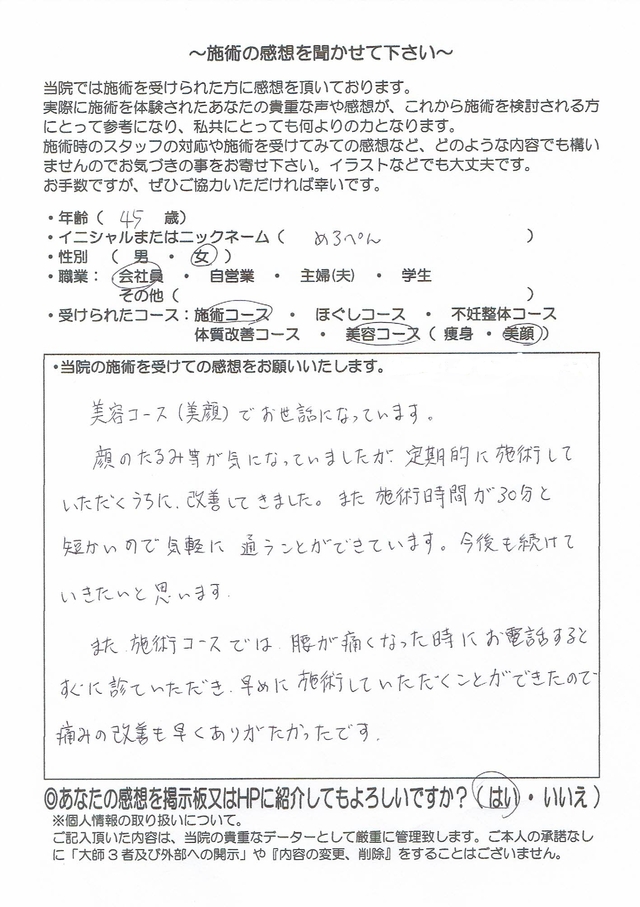 ～施術の感想を聞かせて下さい～
当院では施術を受けられた方に感想を頂いております。
実際に施術を体験されたあなたの貴重な声や感想が、これから施術を検討される方
にとって参考になり、私共にとっても何よりの力となります。
施術時のスタッフの対応や施術を受けてみての感想など、どのような内容でも構い
ませんのでお気づきの事をお寄せ下さい。イラストなどでも大丈夫です。
お手数ですが、ぜひご協力いただければ幸いです。
・年齢（ 45 歳）
・イニシャルまたはニックネーム（ めろぺん ）
・性別 （ 男 ・ 女 ）
・職業： 会社員 ・ 自営業 ・ 主婦(夫) ・ 学生
その他（ ）
・受けられたコース：施術コース ・ ほぐしコース ・ 不妊整体コース
体質改善コース ・ 美容コース（ 痩身 ・ 美顔 ）
・当院の施術を受けての感想をお願いいたします。
美容コース（美顔）でお世話になっています。
顔のたるみ等が気になっていましたが、定期的に施術して
いただくうちに、改善してきました。また施術時間が30分と
短かいので気軽に通うことができています。今後も続けて
いきたいと思います。
また、施術コースでは、腰が痛くなった時にお電話すると
すぐに診ていただき、早めに施術していただくことができたので
痛みの改善も早くありがたかったです。
◎あなたの感想を掲示板又はHPに紹介してもよろしいですか？（ はい ・ いいえ ）
※個人情報の取り扱いについて。
ご記入頂いた内容は、当院の貴重なデーターとして厳重に管理致します。ご本人の承諾なし
に「大師３者及び外部への開示」や『内容の変更、削除』をすることはございません。